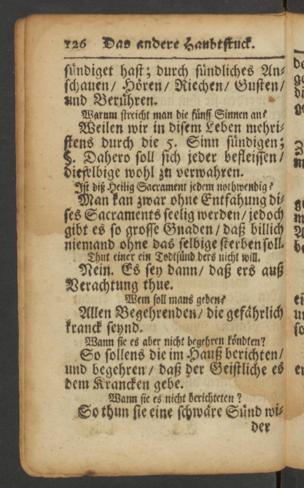 126 Das andere Haubtstuck.
sündiget hast; durch sündliches An-
schauen/ Hören/ Riechen/ Gusten/
und Berühren.
Warum streicht man die fünff Sinnen an?
Weilen wir in disem Leben mehri-
stens durch die 5. Sinn sündigen;
§. Dahero soll sich jeder befleissen/
dieselbige wohl zu verwahren.
Ist diß Heilig Sacrament jedem nothwendig?
Man kan zwar ohne Entfahung di-
ses Sacraments seelig werden/ jedoch
gibt es so grosse Gnaden/ daß billich
niemand ohne das selbige sterben soll.
Thut einer ein Todtsünd ders nicht will.
Nein. Es sey dann/ daß ers auß
Verachtung thue.
Wem soll mans geben?
Allen Begehrenden/ die gefährlich
kranck seynd.
Wann sie es aber nicht begehren köndten?
So sollens die im Hauß berichten/
und begehren/ daß der Geistliche es
dem Krancken gebe.
Wann sie es nicht berichteten?
So thun sie eine schwäre Sünd wi-
der